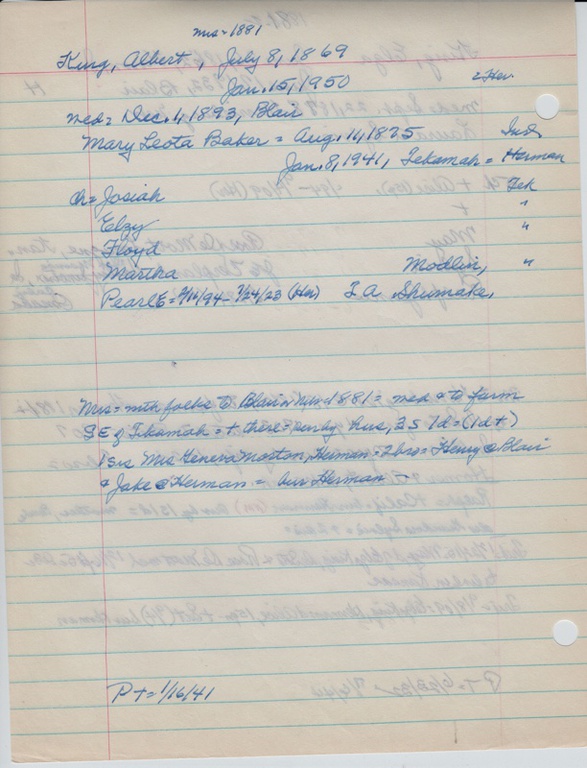 mis=1881
King, Albert, July 8, 1869
Jan. 15, 1950 = Her
med = Dec. 4, 1893, Blair
Mary Leota Baker = Aug. 11, 1875 Ind.
Jan. 8, 1941, Tekamah = Herman
ch = Josiah Tek
Elzy "
Floyd "
Martha Modlin, "
Pearl E = /94 - 7/24/23 (Her) I A Shumake,
Mis = with folks to Blair 1881 = med & to farm
SE of Tekamah = + there = survd by hus, 3 s 1 d = (1 d +)
1 sis Mrs Genera Morton, Herman = 2 bro = Henry @ Blair
& Jake @ Herman = bur Herman
P T = 1/16/41